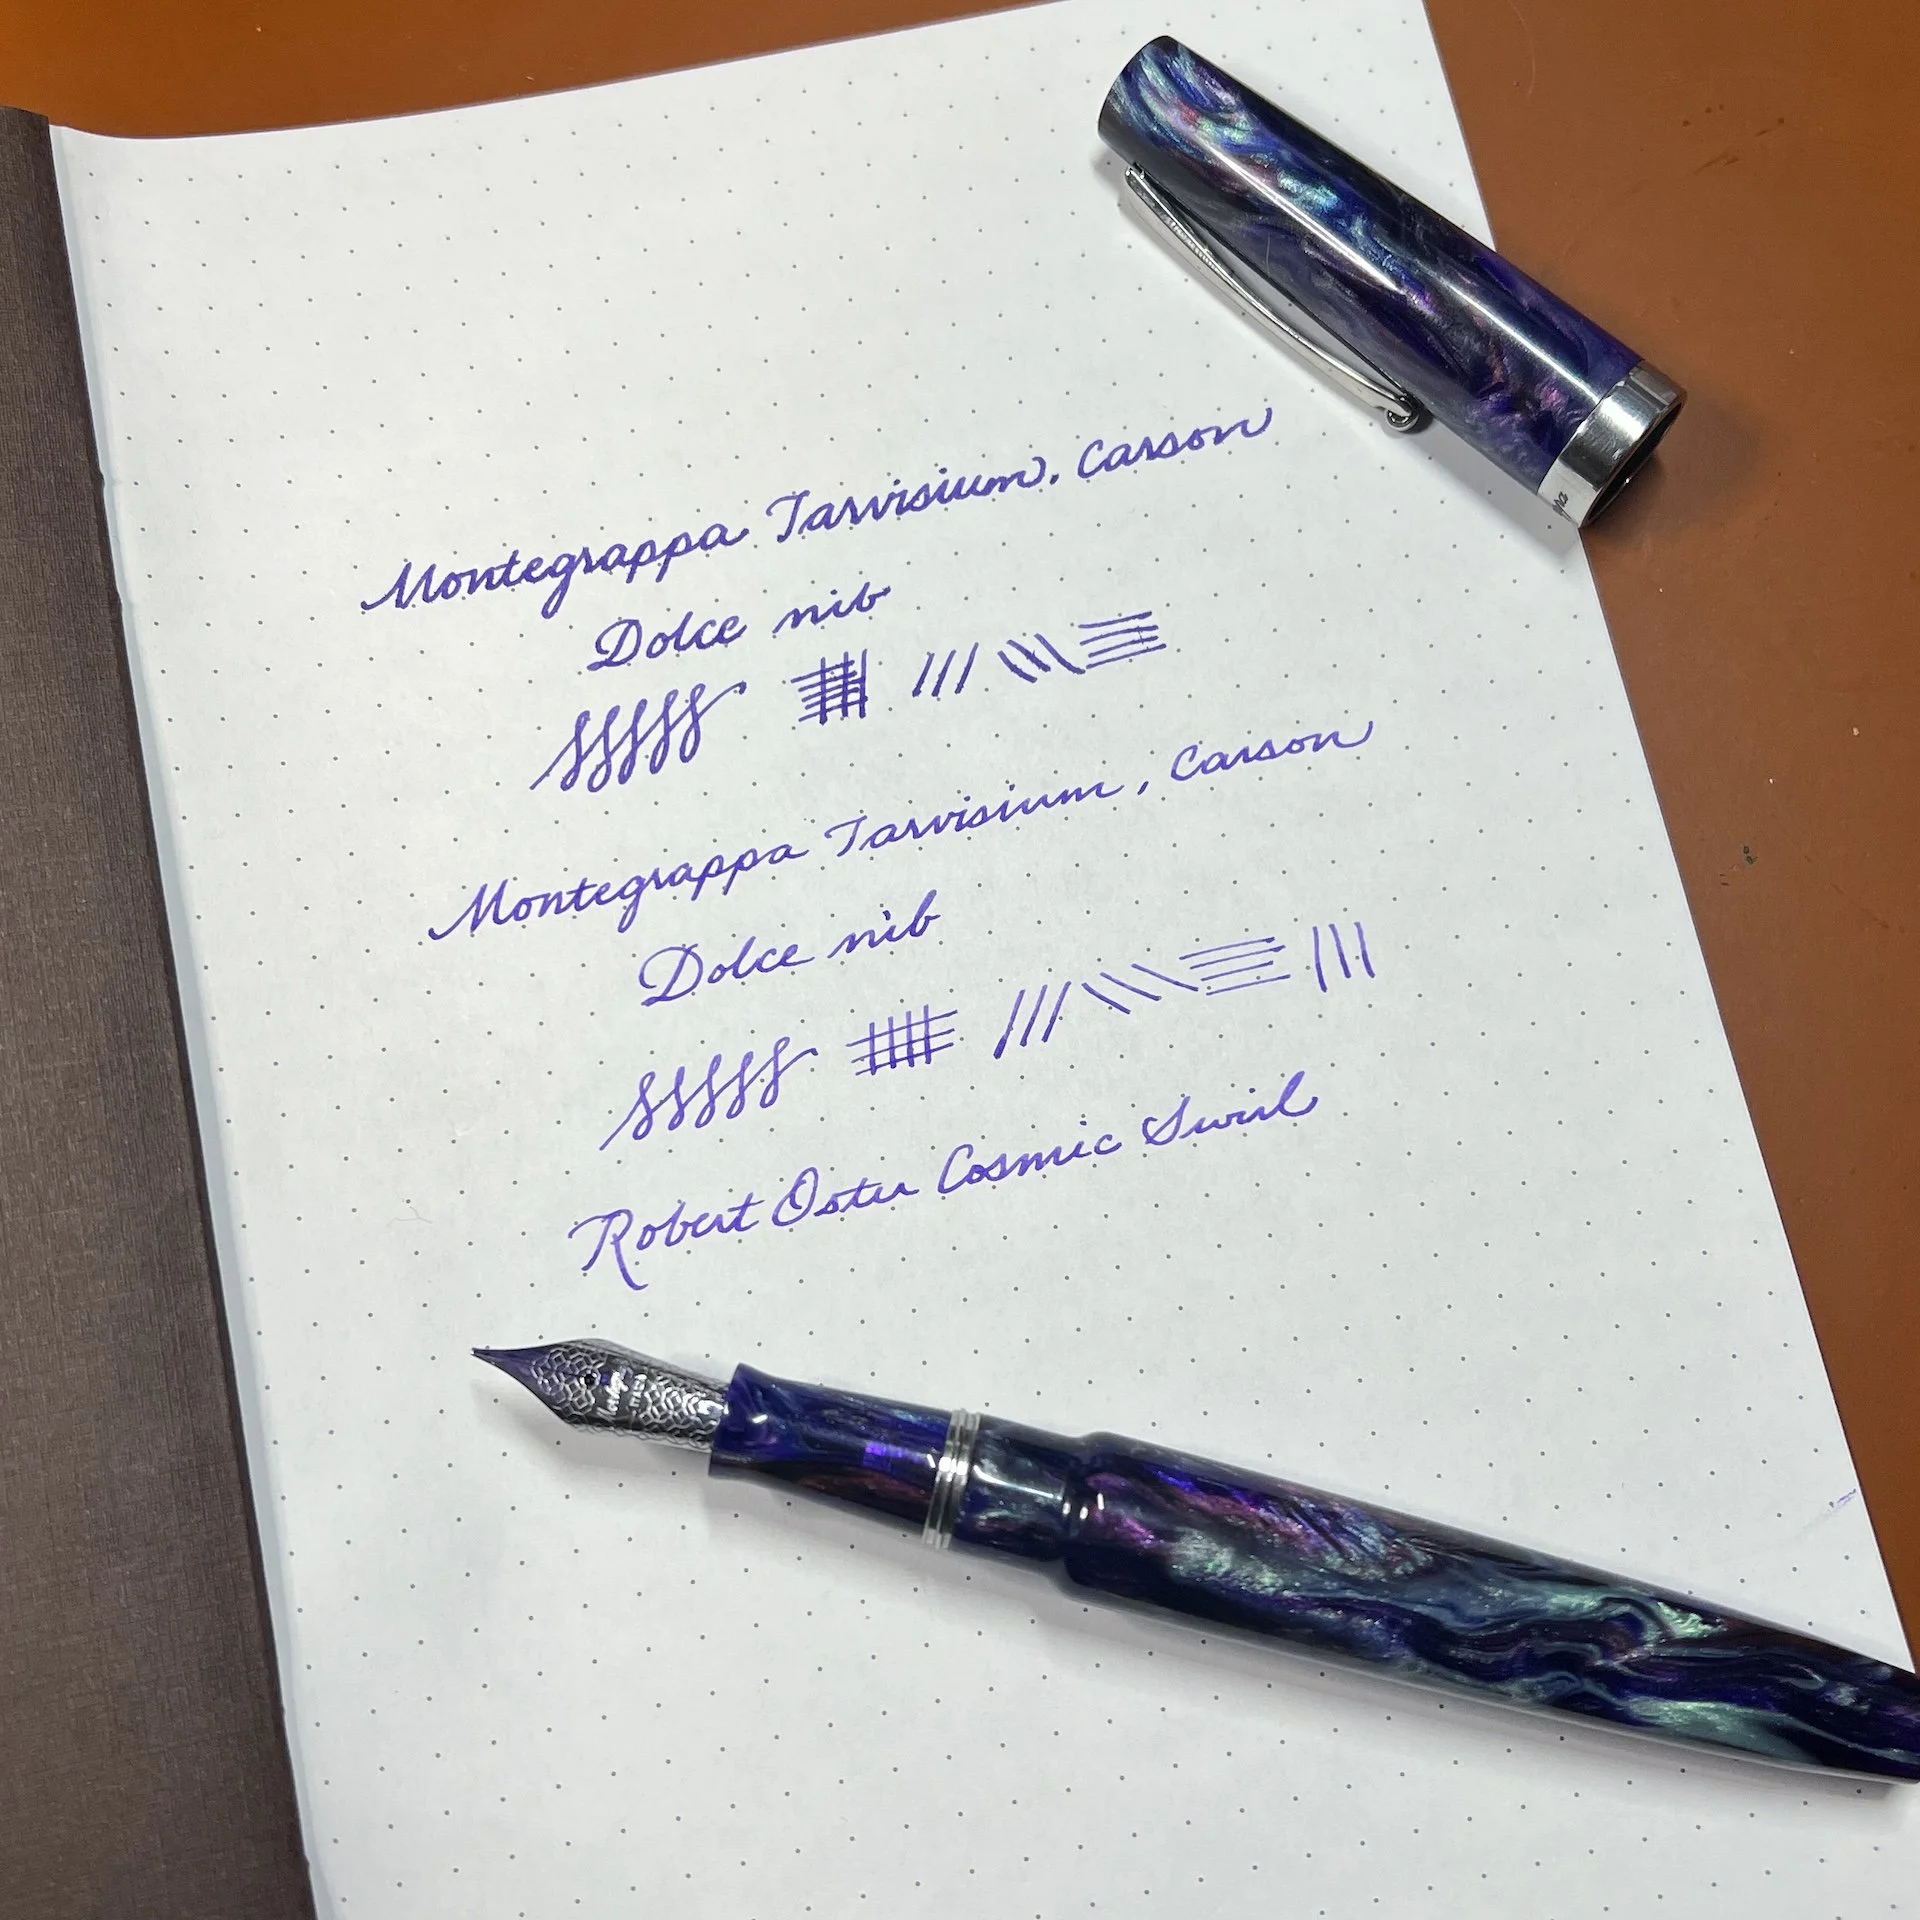 Montegrappa Tarvisium, Carson
Dolce nib
Montegrappa Tarvisium, Carson
Dolce nib
Robert Oster Cosmic Swirl